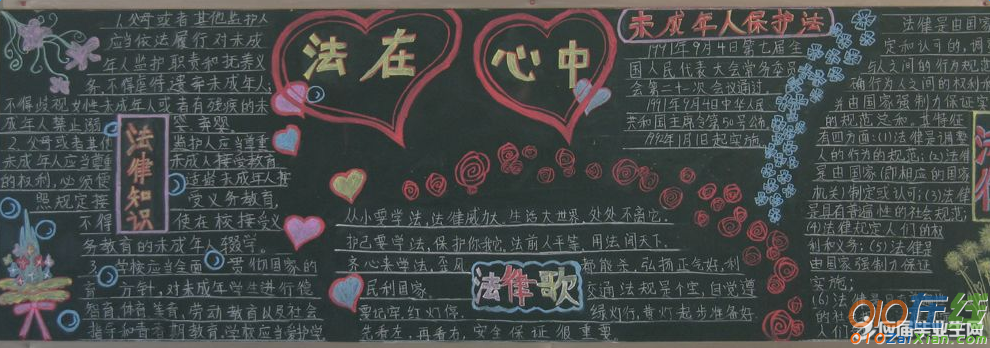 1.父母或者其他监护人
应当依法履行对未成
年人监护职责和抚养义
务,不得虐待、遗弃未成年人,
不得歧视女性未成年人或者有残疾的未
成年人禁止溺婴、弃婴
2.父母或者其他监护人应当尊重
未成年人应当尊重未成年人接受教育
的权利,必须使适龄未成年人接
照规定接受义务教育,
不得使在校接受义
务教育的未成年人辍学。
3.学校应当全面贯彻国家的
育方针,对未成年学生进行德
智育体育美育、劳动教育以及社会
指导和青春期教育学校应当爱护学
法律知识
法在
心中
从小要学法,法律威力大,生活大世界,处处不离它.
护己要学法,保护你我它,法前人平等,用法闯天下.
齐心来学法,歪风都能杀,弘扬正气好,利
民利国家.交通法规是个宝,自觉遵
要记牢.红灯停.绿灯行,黄灯起步准备好,
先看左,再看右,安全保证很重要.
法律歌
未成年人保护法
1991年9月4日第七届全
国人民代表大会常务委员
会第二十一次会议通过
1991年9月4日中华人民
共和国主席令第50号公布
1992年1月1日起实施
法律是由国家
定和认可的,调
人之间的行为规范
确行为之间的权利
并由国家强制力保证实
的规范总和.其特征
有四方面:(1)法律是调整
人的行为的规范;(2)法律
是由国家(即相应的国家
机关)制定或认可;(3)法律
是具有普遍性的社会规范;
(4)法律规定人们的权
利和义务;(5)法律是
由国家强制力保证
实施;
910在线
应届毕业生网
910ZaiXian.com